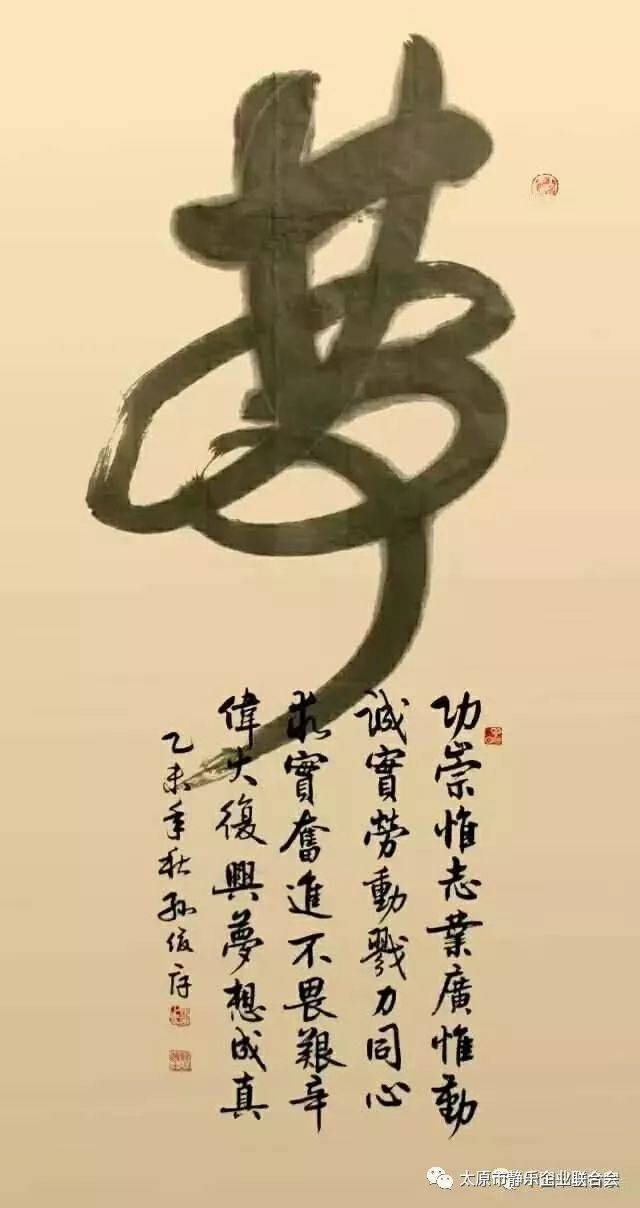 夢
功崇惟志業廣惟勤
誠實勞動戮力同心
求實奮進不畏艱辛
偉大復興夢想成真
乙未年秋孫俊
太原市静乐企业联合会